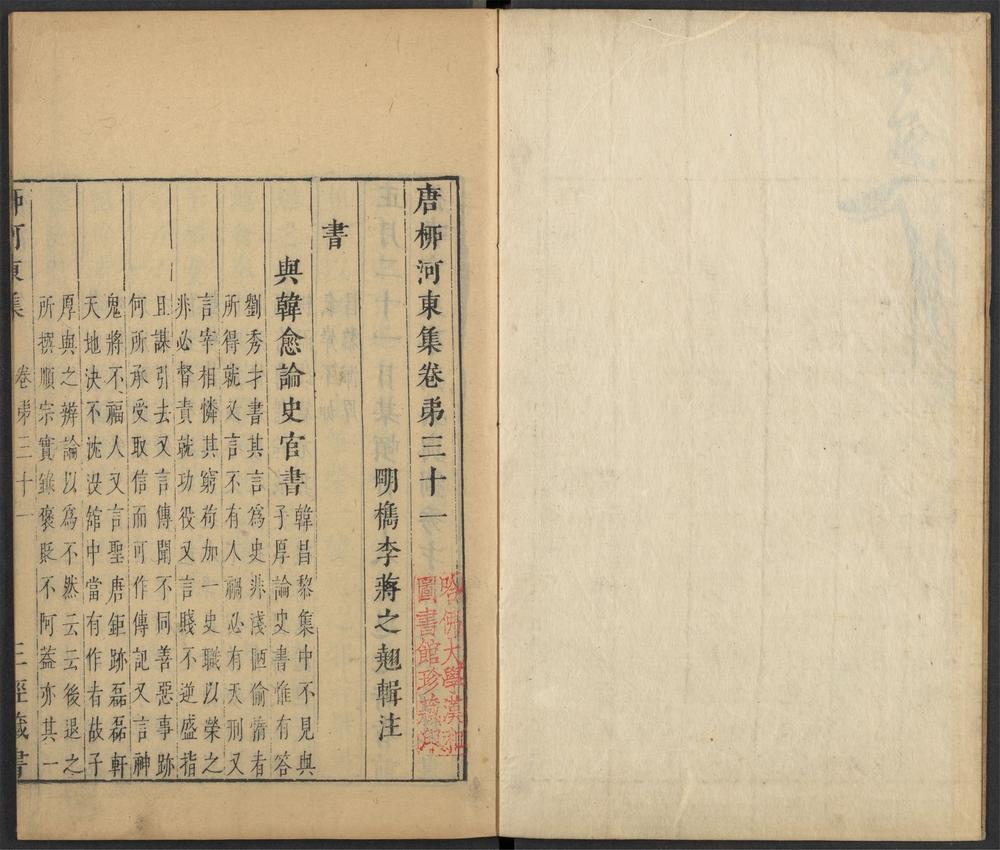 唐柳河東集卷弟三十一
明檇李蔣之翹輯注
哈佛大學漢和
圖書館珍藏印
書
與韓愈論史官書
韓昌黎集中不見與
子厚論史書惟有答
劉秀才書其言爲史非淺陋偷惰者
所得就又言不有人禍必有天刑又
言宰相憐其窮苟加一史職以榮之
非必督責就功役又言賤不逆盛指
且謀引去又言傳聞不同善惡事跡
何所承受取信而可作傳記又言神
鬼將不福人又言聖唐鉅跡磊磊軒
天地決不沈沒館中當有作者故子
厚與之辨論以爲不然云云後退之
所撰順宗實錄褒貶不阿蓋亦其一
柳河東集 卷弟三十一 三徑藏書